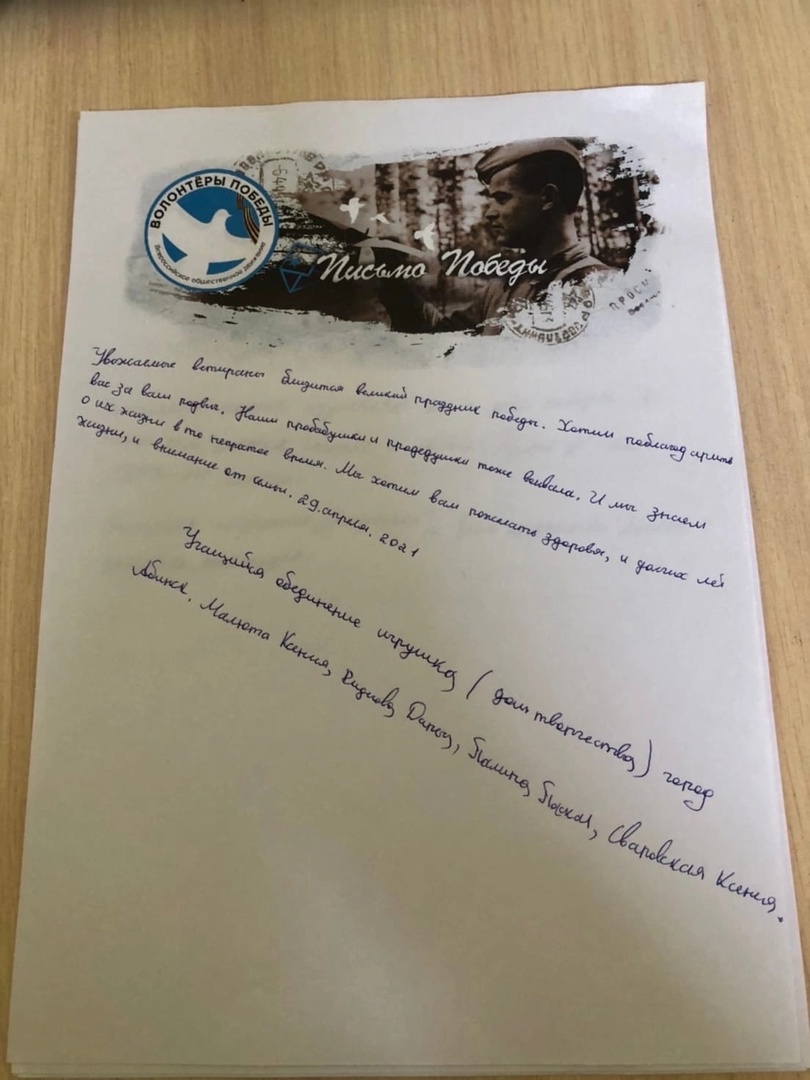 ВОЛОНТЁРЫ ПОБЕДЫ
Всероссийское общественное движение
Письмо Победы
ПРОСМ
Уважаемые ветираны близится великий праздник победы. Хотим поблагодарить
вас за ваш подвиг. Наши прабабушки и прадедушки тоже воивала. И мы знаем
о их жизни в то непратое время. Мы хотим вам пожелать здоровья, и долгих лет
жизни, и внимание от семьи. 29.апреля. 2021
Учащийся обединение игрушка (дом творчества) город
Абинск. Малюта Ксения, Дарья, Полина, Сваровская Ксения.